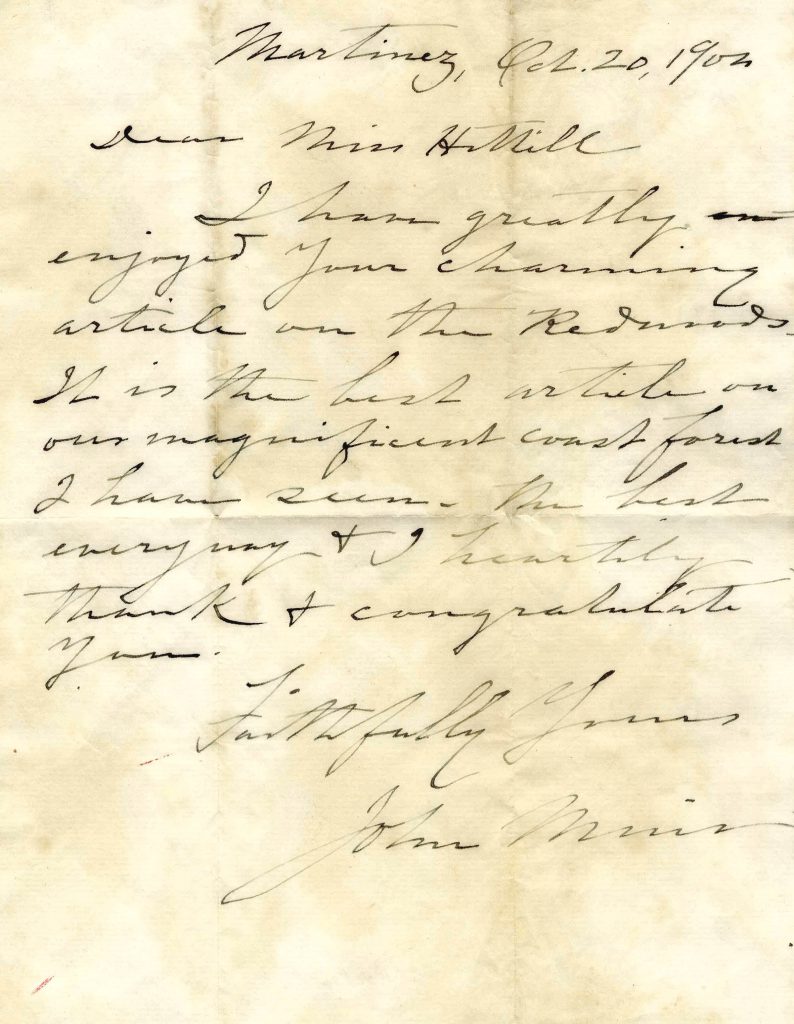 Martinez, Oct. 20, 1904
Dear Miss Hittell
I have greatly en
enjoyed your charming
article on the Redwoods.
It is the best article on
our magnificent coast forest
I have seen - the best
everyway & I heartily
thank & congratulate
you.
Faithfully Yours
John Muir